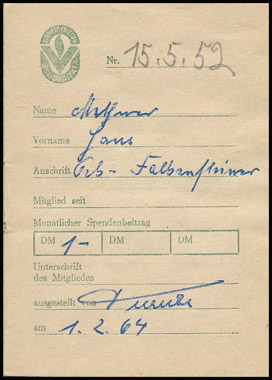 Nr. 15.5.52
Name
Vorname Hans
Anschrift
Mitglied seit
Monatlicher Spendenbeitrag
DM 1- DM DM
Unterschrift
des Mitgliedes
ausgestellt von
am 1.2.64